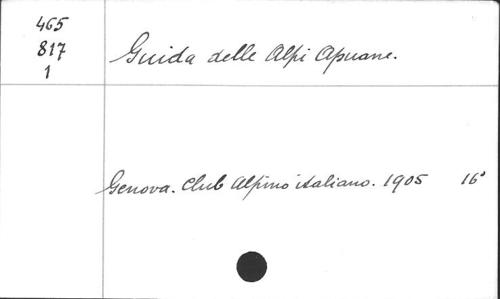 465
817
1
Guida delle Alpi Apuane.
Genova. Club Alpino italiano. 1905 16°